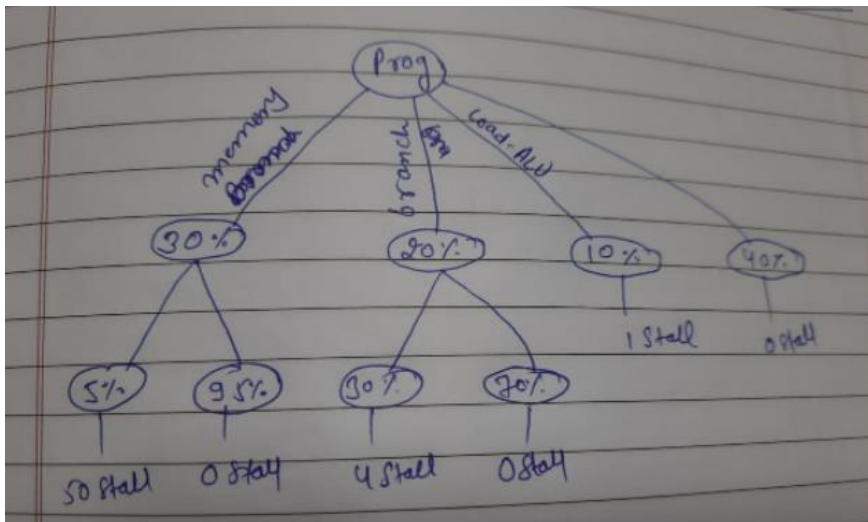 Prog
memory
branch
Load-ALU
30%
20%
10%
40%
1 Stall
0 Stall
5%
95%
30%
70%
50 Stall
0 Stall
4 Stall
0 Stall